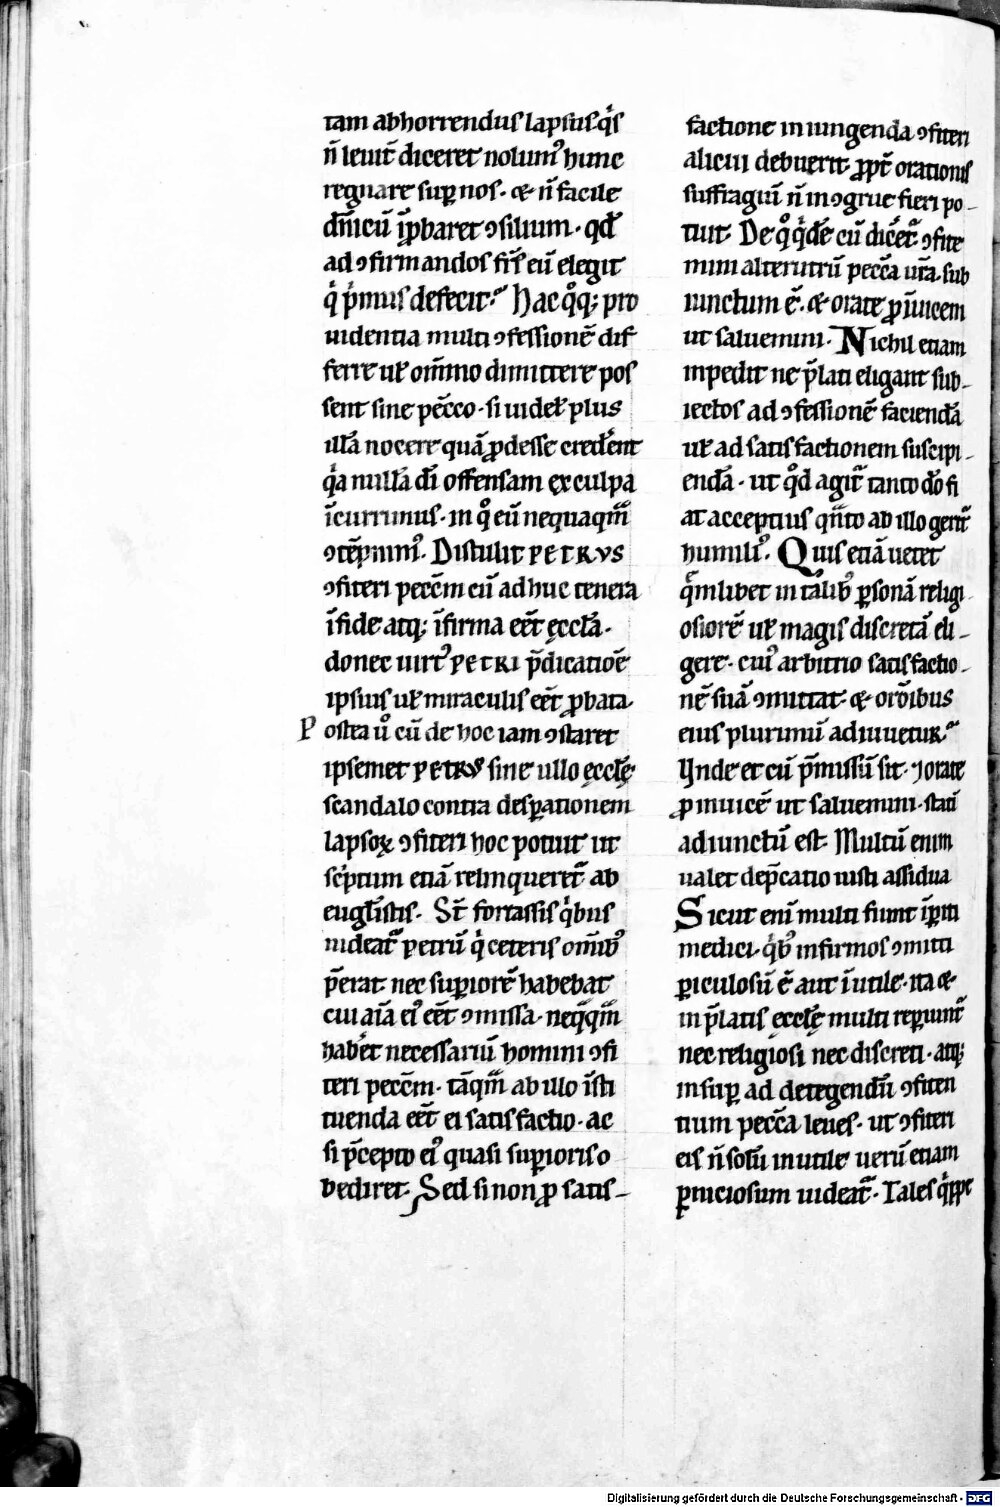 tam abhorrendus lapsus q̇s
n̄ leuit̄ diceret nolumꝰ hunc
regnare sup̱ nos. & n̄ facile
dn̄icū īp̱baret ꝯsilium. qd̄
ad ꝯfirmandos fr̄s eū elegit
q̇ ṗmus defecit. Hac q̊q; pro
uidentia multi ꝯfessionē dif
ferre uł om̄ino dimittere pos
sent sine pēcco. si uideł plus
illā nocere quā ꝓdesse crederent
q̇a nullā dī offensam ex culpa
īcurrimus. in q̊ eū nequaqm̄
ꝯtēpnimꝰ. Distulit PETRVS
ꝯfiteri pecc̄m cū adhuc tenera
īfide atq; īfirma eēt ęccła.
donec uirtꝰ PETRI p̄dicatiōe
ipsius uł miraculis eēt ꝓbata.
Postea ů cū de hoc iam ꝯstaret
ipsemet PETRVS sine ullo ęccłę
scandalo contra desp̱ationem
lapsoꝝ ꝯfiteri hoc potuit ut
sċptum etiā relinqueret̄ ab
eugł̄istis. St̄ fortassis q̇bus
uideat̄ petrū q̇ ceteris om̄ibꝰ
p̄erat nec sup̱iorē habebat
cui aīa eiꝰ eēt ꝯmissa. neq̄q̄m
haberet necessariū homini ꝯfi
teri pecc̄m. tāqm̄ ab illo īsti
tuenda eēt ei satisfactio. ac
si p̄cepto eiꝰ quasi sup̱ioris o
bediret. Sed si non ꝓ satis-
factione iniungenda ꝯfiteri
alicui debuerit. ꝓpt̄ orationis
suffragiū n̄ inꝯgrue fieri po-
tuit. De q̊ q̇dē cū dicet̄ ꝯfite
mini alterutrū pecc̄a ur̄a. sub
iunctum ē. & orate ꝓ īuicem
ut saluemini. Nichil etiam
inpedit ne p̄lati eligant sub-
iectos ad ꝯfessionē faciendā
uł ad satisfactionem suscipi-
endā. ut q̊d agit̄ tanto dō fi
at acceptius qn̄to ab illo gerit̄
humiliꝰ. Quis etiā uetet
q̄mlibet in talibꝰ p̱sonā religi
osiorē uł magis discretā eli-
gere. cuiꝰ arbitrio satisfactio-
nē suā ꝯmittat. & or̄onibus
eius plurimū adiuuetur.
Vnde et cū p̄missū sit. ⁊ orate
ꝓ inuicē ut saluemini. statī
adiunctū est. Multū enim
ualet dep̄catio iusti assidua
Sicut enī multi fiunt īp̱iti
medici. q̇bꝰ infirmos ꝯmitti
p̱iculosū ē aut īutile. ita &
in p̄latis ęccłę multi rep̱iunt̄
nec religiosi nec discreti. atq;
insup̱ ad detegendū ꝯfiten
tium pecc̄a leues. ut ꝯfiteri
eis n̄ solū inutile uerū etiam
p̱niciosum uideat̄. Tales q̇ppe
Digitalisierung gefördert durch die Deutsche Forschungsgemeinschaft - DFG